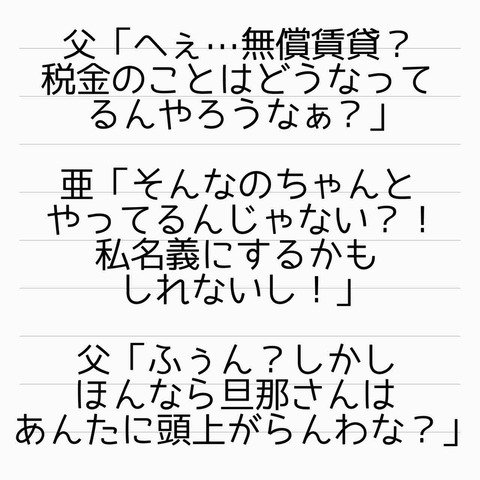 父「へぇ…無償賃貸？
税金のことはどうなって
るんやろうなぁ？」
亜「そんなのちゃんと
やってるんじゃない？！
私名義にするかも
しれないし！」
父「ふぅん？しかし
ほんなら旦那さんは
あんたに頭上がらんわな？」